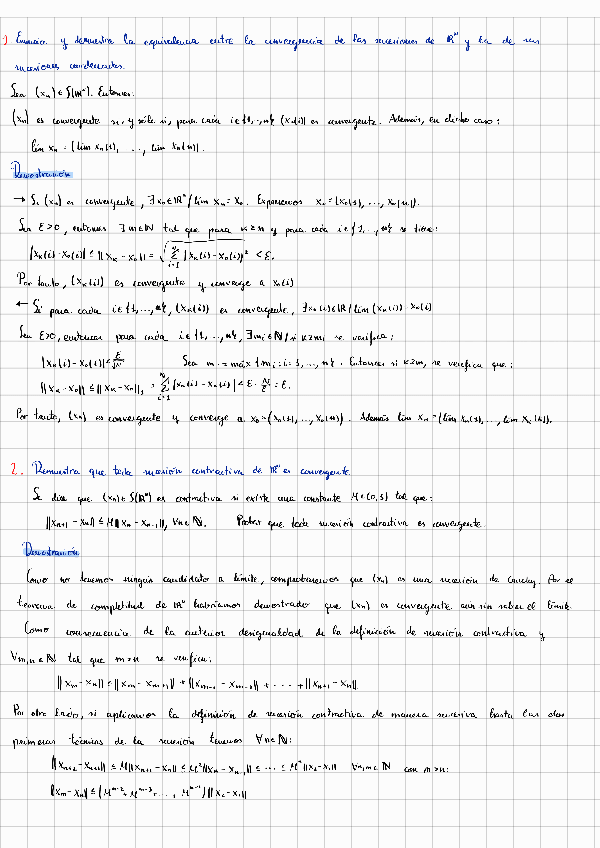 1) Enuncia y demuestra la equivalencia entre la convergencia de las sucesiones de ℝᴺ y la de sus
sucesiones coordenadas.
Sea (xₙ) ∈ S(ℝᴺ). Entonces:
(xₙ) es convergente si, y sólo si, para cada i∈{1,..,N} (xₙ(i)) es convergente. Además, en dicho caso:
lim xₙ = (lim xₙ(1), ..., lim xₙ(N)).
Demostración
→ Si (xₙ) es convergente, ∃ x₀∈ℝᴺ / lim xₙ = x₀. Expresemos x₀ = (x₀(1), ..., x₀(N)).
Sea ε>0, entonces ∃ m∈ℕ tal que para k≥m y para cada i∈{1,..,N} se tiene:
|xₖ(i) - x₀(i)| ≤ ||xₖ - x₀|| = √(Σᵢ₌₁ᴺ |xₖ(i) - x₀(i)|²) < ε.
Por tanto, (xₖ(i)) es convergente y converge a x₀(i)
← Si para cada i∈{1,...,N}, (xₖ(i)) es convergente, ∃ x₀(i)∈ℝ / lim (xₖ(i)) = x₀(i)
Sea ε>0, entonces para cada i∈{1,...,N}, ∃ mᵢ∈ℕ / si k≥mᵢ se verifica:
|xₖ(i) - x₀(i)| < ε/N Sea m = máx {mᵢ : i=1,...,N}. Entonces si k≥m, se verifica que:
||xₖ - x₀|| ≤ ||xₖ - x₀||₁ = Σᵢ₌₁ᴺ |xₖ(i) - x₀(i)| < ε · N/ε = ε.
Por tanto, (xₙ) es convergente y converge a x₀ = (x₀(1), ..., x₀(N)). Además lim xₙ = (lim xₙ(1), ..., lim xₙ(N)).
2. Demuestra que toda sucesión contractiva de ℝᴺ es convergente
Se dice que (xₙ) ∈ S(ℝᴺ) es contractiva si existe una constante M∈(0,1) tal que:
||xₙ₊₁ - xₙ|| ≤ M||xₙ - xₙ₋₁||, ∀n∈ℕ. Probar que toda sucesión contractiva es convergente
Demostración
Como no tenemos ningún candidato a límite, comprobaremos que (xₙ) es una sucesión de Cauchy. Por el
teorema de completitud de ℝᴺ habríamos demostrado que (xₙ) es convergente aun sin saber el límite.
Como consecuencia de la anterior desigualdad de la definición de sucesión contractiva y
∀m,n∈ℕ tal que m>n se verifica:
||xₘ - xₙ|| ≤ ||xₘ - xₘ₋₁|| + ||xₘ₋₁ - xₘ₋₂|| + ... + ||xₙ₊₁ - xₙ||
Por otro lado, si aplicamos la definición de sucesión contractiva de manera sucesiva hasta los dos
primeros términos de la sucesión tenemos ∀n∈ℕ:
||xₙ₊₂ - xₙ₊₁|| ≤ M||xₙ₊₁ - xₙ|| ≤ M²||xₙ - xₙ₋₁|| ≤ ... ≤ Mⁿ||x₂ - x₁|| ∀n,m∈ℕ con m>n:
||xₘ - xₙ|| ≤ (Mᵐ⁻² + Mᵐ⁻³ + ... + Mⁿ⁻¹) ||x₂ - x₁||